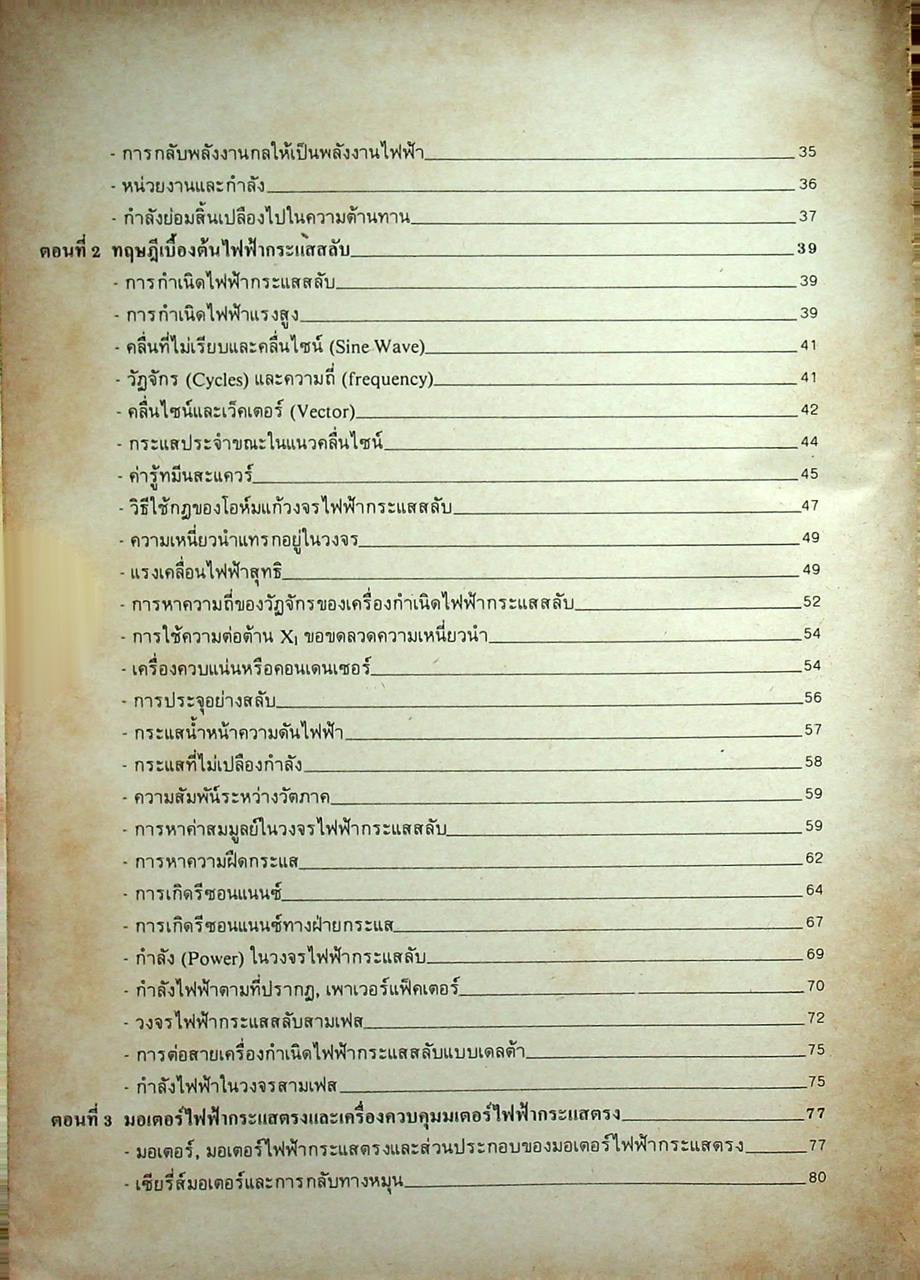 - การกลับพลังงานกลให้เป็นพลังงานไฟฟ้า 35
- หน่วยงานและกำลัง 36
- กำลังย่อมสิ้นเปลืองไปในความต้านทาน 37
ตอนที่ 2 ทฤษฎีเบื้องต้นไฟฟ้ากระแสสลับ 39
- การกำเนิดไฟฟ้ากระแสสลับ 39
- การกำเนิดไฟฟ้าแรงสูง 39
- คลื่นที่ไม่เรียบและคลื่นไซน์ (Sine Wave) 41
- วัฏจักร (Cycles) และความถี่ (frequency) 41
- คลื่นไซน์และเว็คเตอร์ (Vector) 42
- กระแสประจำขณะในแนวคลื่นไซน์ 44
- ค่ารู้ทมีนสะแควร์ 45
- วิธีใช้กฎของโอห์มแก้วงจรไฟฟ้ากระแสสลับ 47
- ความเหนี่ยวนำแทรกอยู่ในวงจร 49
- แรงเคลื่อนไฟฟ้าสุทธิ 49
- การหาความถี่ของวัฏจักรของเครื่องกำเนิดไฟฟ้ากระแสสลับ 52
- การใช้ความต่อต้าน Xl ขอขดลวดความเหนี่ยวนำ 54
- เครื่องควบแน่นหรือคอนเดนเซอร์ 54
- การประจุอย่างสลับ 56
- กระแสน้ำหน้าความดันไฟฟ้า 57
- กระแสที่ไม่เปลืองกำลัง 58
- ความสัมพันธ์ระหว่างวัตภาค 59
- การหาค่าสมมูลย์ในวงจรไฟฟ้ากระแสสลับ 59
- การหาความฝืดกระแส 62
- การเกิดรีซอนแนนซ์ 64
- การเกิดรีซอนแนนซ์ทางฝ่ายกระแส 67
- กำลัง (Power) ในวงจรไฟฟ้ากระแสลับ 69
- กำลังไฟฟ้าตามที่ปรากฏ, เพาเวอร์แฟ็คเตอร์ 70
- วงจรไฟฟ้ากระแสสลับสามเฟส 72
- การต่อสายเครื่องกำเนิดไฟฟ้ากระแสสลับแบบเดลต้า 75
- กำลังไฟฟ้าในวงจรสามเฟส 75
ตอนที่ 3 มอเตอร์ไฟฟ้ากระแสตรงและเครื่องควบคุมมเตอร์ไฟฟ้ากระแสตรง 77
- มอเตอร์, มอเตอร์ไฟฟ้ากระแสตรงและส่วนประกอบของมอเตอร์ไฟฟ้ากระแสตรง 77
- เซียรี่ส์มอเตอร์และการกลับทางหมุน 80